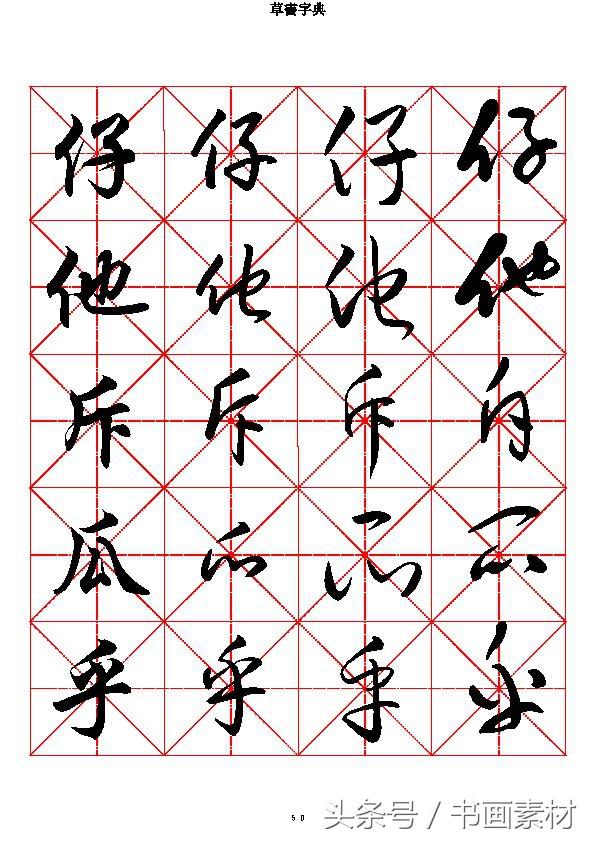 草書字典
仔仔仔仔
他他他他
斥斥斥斥
瓜瓜瓜瓜
乎乎乎乎
50
头条号 / 书画素材